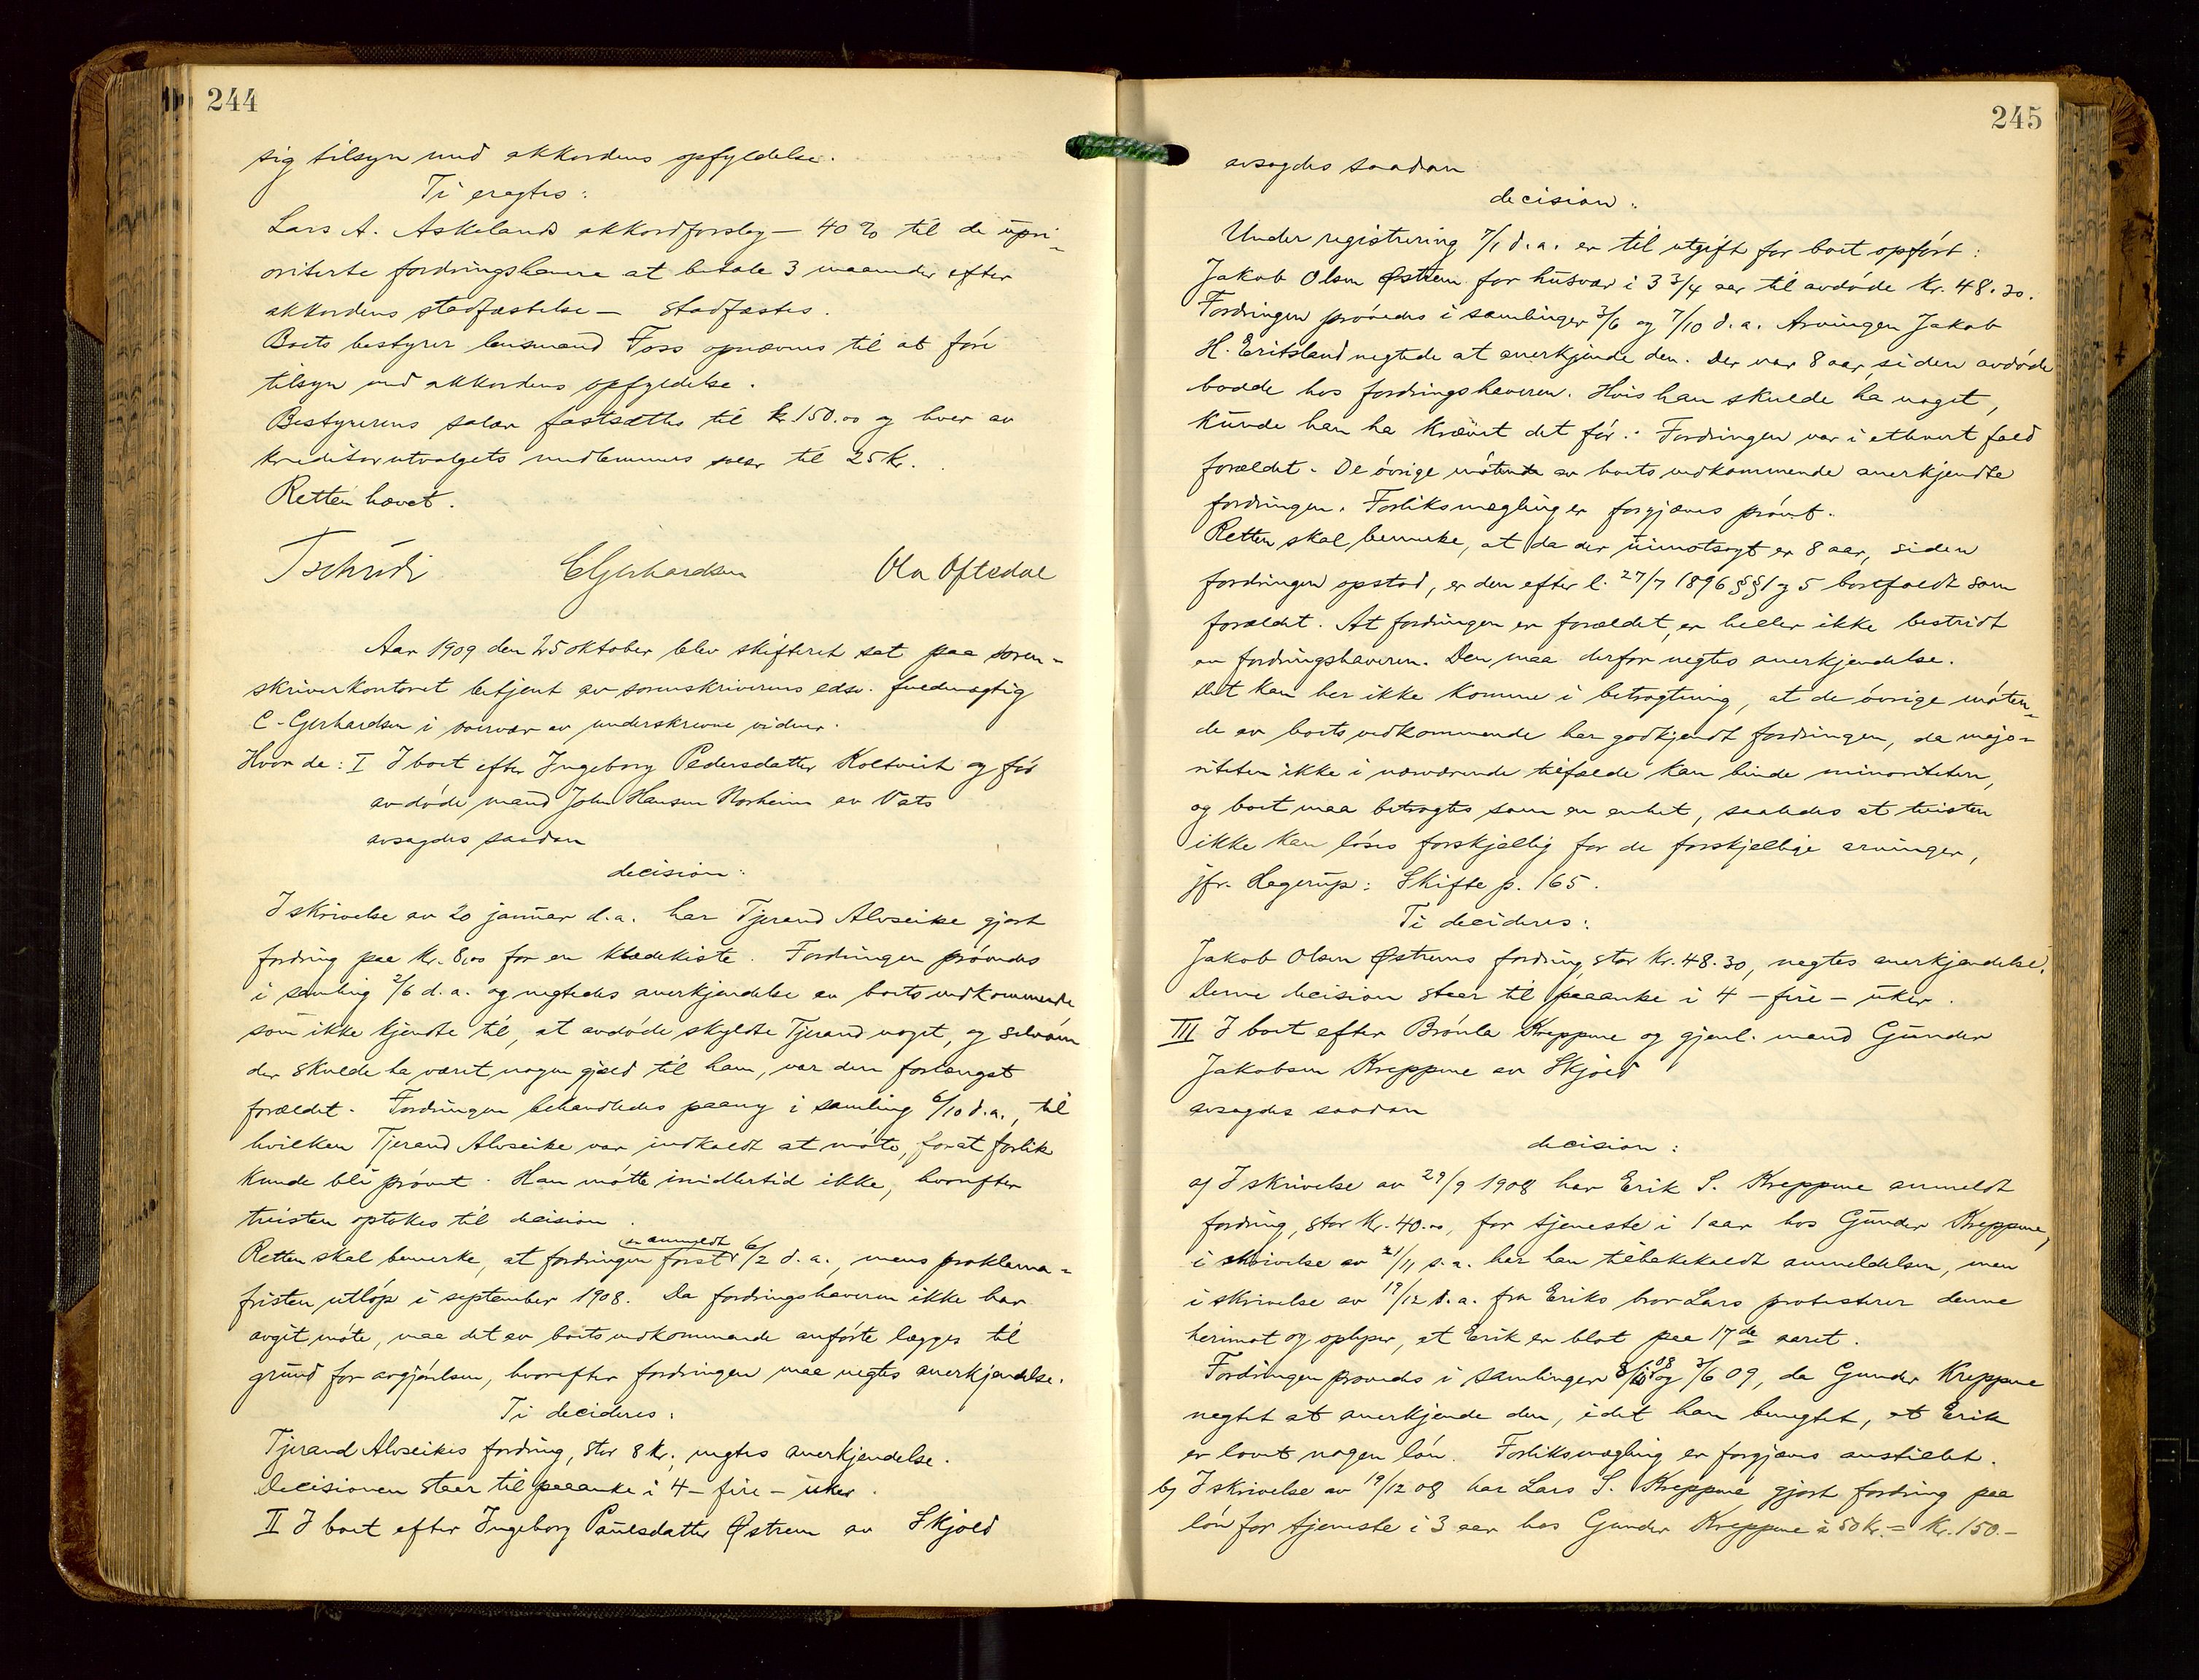 244
sig tilsyn med akkordens opfyldelse.
Ti eragtes:
Lars A. Askelands akkordforslag – 40 % til de upri-
oriterte fordringshavere at betale 3 maaneder efter
akkordens stadfæstelse – stadfæstes.
Boets bestyrer lensmand Foss opnævnes til at føre
tilsyn med akkordens opfyldelse.
Bestyrerens salær fastsættes til kr. 150.00 og hver av
kreditorutvalgets medlemmers salær til 25 kr.
Retten hævet.
Tschudi CGerhardsen Ola Oftedal
Aar 1909 den 25 oktober blev skifteret sat paa soren-
skriverkontoret betjent av sorenskriverens edsv. fuldmægtig
C. Gerhardsen i overvær av underskrevne vidner.
Hvor da: I I boet efter Ingeborg Pedersdatter Koltveit og før
avdøde mand John Hansen Norheim av Vats
avsagdes saadan
decision:
I skrivelse av 20 januar d.a. har Tjerand Alvseike gjort
fordring paa kr. 8.00 for en klædekiste. Fordringen prøvedes
i samling 2/6 d.a. og negtedes anerkjendelse av boets vedkommende
som ikke kjendte til, at avdøde skyldte Tjerand noget, og selvom
der skulde ha været nogen gjæld til ham, var den forlængst
forældet. Fordringen behandledes paany i samling 6/10 d.a., til
hvilken Tjerand Alvseike var indkaldt at møte, forat forlik
kunde bli prøvet. Han møtte imidlertid ikke, hvorefter
tvisten optokes til decision.
Retten skal bemerke, at fordringen først er anmeldt 6/2 d.a., mens proklama-
fristen utløp i september 1908. Da fordringshaveren ikke har
avgit møte, maa det av boets vedkommende anførte lægges til
grund for avgjørelsen, hvorefter fordringen maa negtes anerkjendelse.
Ti decideres:
Tjerand Alvseikes fordring, stor 8 kr., negtes anerkjendelse.
Decisionen staar til paaanke i 4 – fire – uker.
II I boet efter Ingeborg Paulsdatter Østrem av Skjold
245
avsagdes saadan
decision:
Under registrering 7/1 d.a. er til utgift for boet opført:
Jakob Olsen Østrem for husvær i 3 3/4 aar til avdøde kr. 48.30.
Fordringen prøvedes i samlinger 3/6 og 7/10 d.a. Arvingen Jakob
H. Eritsland negtede at anerkjende den. Der var 8 aar, siden avdøde
bodde hos fordringshaveren. Hvis han skulde ha noget,
kunde han ha krævet det før. Fordringen var i ethvert fald
forældet. De øvrige møtende av boets vedkommende anerkjendte
fordringen. Forliksmægling er forgjæves prøvet.
Retten skal bemerke, at da der uimotsagt er 8 aar, siden
fordringen opstod, er den efter l. 27/7 1896 §§ 1 og 5 bortfaldt som
forældet. At fordringen er forældet, er heller ikke bestridt
av fordringshaveren. Den maa derfor negtes anerkjendelse.
Det kan her ikke komme i betragtning, at de øvrige møten-
de av boets vedkommende har godkjendt fordringen, da majo-
riteten ikke i nærværende tilfælde kan binde minoriteten,
og boet maa betragtes som en enhet, saaledes at tvisten
ikke kan løses forskjellig for de forskjellige arvinger,
jfr. Hagerup: Skifte p. 165.
Ti decideres:
Jakob Olsen Østrems fordring, stor kr. 48.30, negtes anerkjendelse.
Denne decision staar til paaanke i 4 – fire – uker.
III I boet efter Brønla Kreppene og gjenl. mand Gunder
Jakobsen Kreppene av Skjold
avsagdes saadan
decision:
a) I skrivelse av 29/9 1908 har Erik S. Kreppene anmeldt
fordring, stor kr. 40.00, for tjeneste i 1 aar hos Gunder Kreppene,
i skrivelse av 21/11 s.a. har han tilbakekaldt anmeldelsen, men
i skrivelse av 19/12 s.a. fra Eriks bror Lars protesterer denne
herimot og oplyser, at Erik er blot paa 17de aaret.
Fordringen prøvedes i samlinger 8/10 08 og 3/6 09, da Gunder Kreppene
negtet at anerkjende den, idet han benegtet, at Erik
er lovet nogen løn. Forliksmægling er forgjæves anstillet.
b) I skrivelse av 19/12 08 har Lars S. Kreppene gjort fordring paa
løn for tjeneste i 3 aar hos Gunder Kreppene à 50 kr. = kr. 150.–